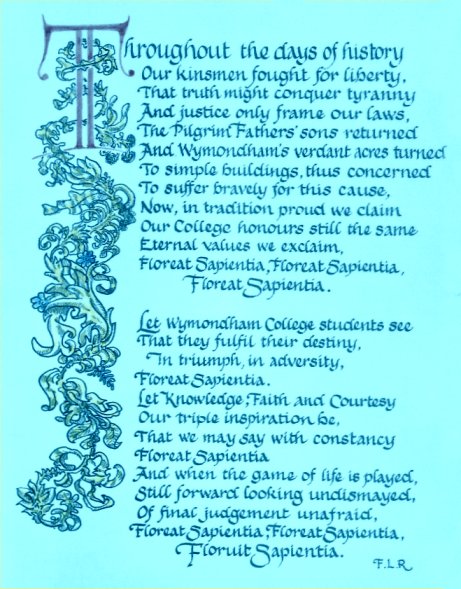 Throughout the days of history
Our kinsmen fought for liberty,
That truth might conquer tyranny
And justice only frame our laws,
The Pilgrim Fathers' sons returned
And Wymondham's verdant acres turned
To simple buildings, thus concerned
To suffer bravely for this cause,
Now, in tradition proud we claim
Our College honours still the same
Eternal values we exclaim,
Floreat Sapientia, Floreat Sapientia,
Floreat Sapientia.
Let Wymondham College students see
That they fulfil their destiny,
In triumph, in adversity,
Floreat Sapientia.
Let Knowledge, Faith and Courtesy
Our triple inspiration be,
That we may say with constancy
Floreat Sapientia
And when the game of life is played,
Still forward looking undismayed,
Of final judgement unafraid,
Floreat Sapientia, Floreat Sapientia,
Floruit Sapientia.
F.L.R